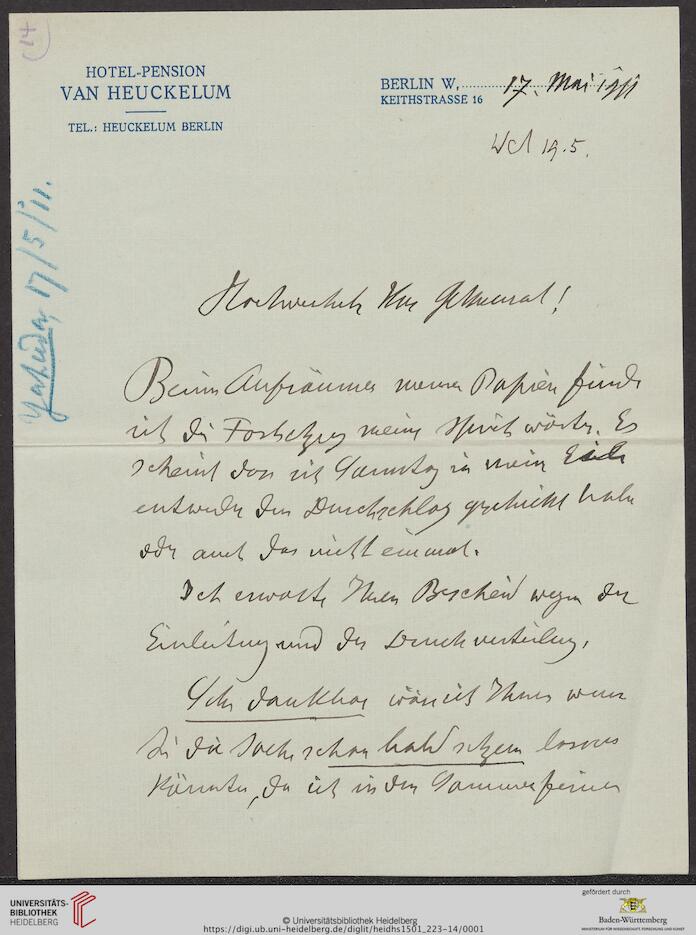 14
HOTEL-PENSION
VAN HEUCKELUM
TEL.: HEUCKELUM BERLIN
BERLIN W, 17. Mai 1911
KEITHSTRASSE 16
19.5.
Yahuda, 17/5/'11.
Hochverehrter Herr Geheimrat!
Beim Aufräumen meiner Papiere finde
ich die Fortsetzung meiner Sprichwörter. Es
scheint dass ich Samstag in meiner Eile
entweder den Durchschlag geschickt habe
oder auch das nicht einmal.
Ich erwarte Ihren Bescheid wegen der
Einleitung und der Druckverteilung.
Sehr dankbar wäre ich Ihnen wenn
Sie die Sache schon bald setzen lassen
könnten, da ich in den Sommerferien
UNIVERSITÄTS-
BIBLIOTHEK
HEIDELBERG
© Universitätsbibliothek Heidelberg
https://digi.ub.uni-heidelberg.de/diglit/heidhs1501_223-14/0001
gefördert durch
Baden-Württemberg
MINISTERIUM FÜR WISSENSCHAFT, FORSCHUNG UND KUNST